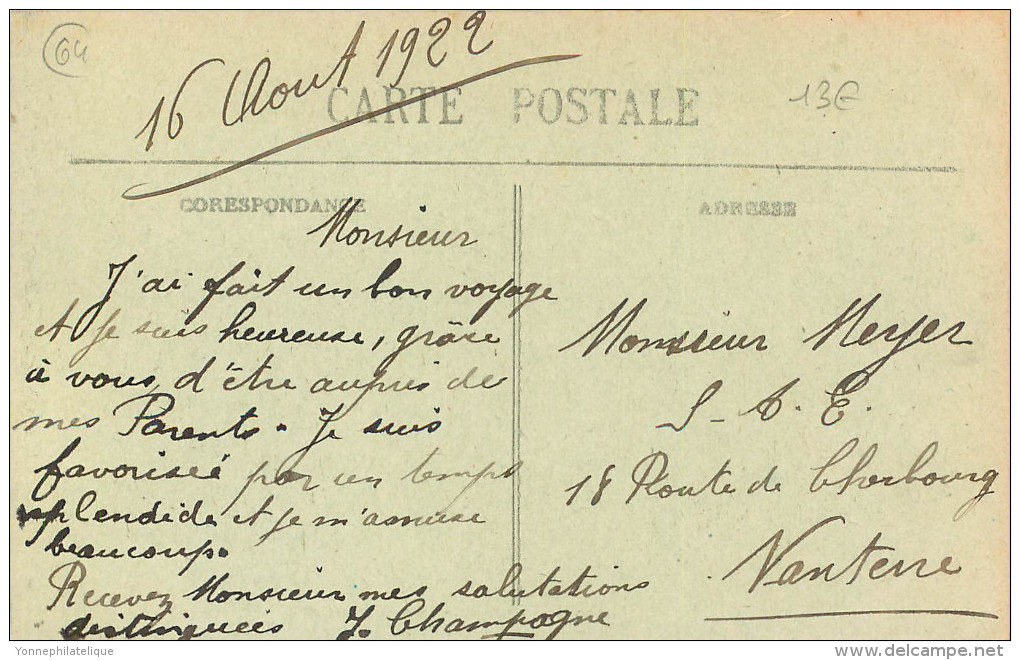 64
16 Aout 1922
13€
CARTE POSTALE
CORESPONDANCE
ADRESSE
Monsieur
J'ai fait un bon voyage
et je suis heureuse, grâce
à vous, d'être auprès de
mes Parents. Je suis
favorisée par un temps
splendide et je m'amuse
beaucoup.
Recevez Monsieur mes salutations
distinguées J. Champagne
Monsieur Meyer
S-A.E.
18 Route de Cherbourg
Nanterre
Yonnephilatelique
delcampe.net